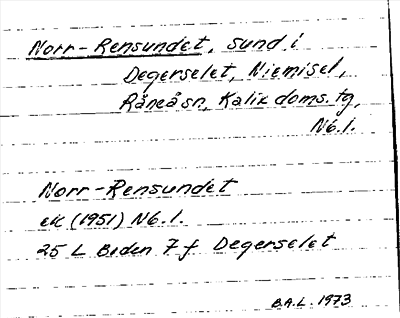 Norr-Rensundet, sund i
Degerselet, Niemisel,
Råneå sn, Kalix doms. tg,
Nb.l.
Norr-Rensundet
ek (1951) Nb.l.
25 L Boden 7 f Degerselet
B.A.L. 1973